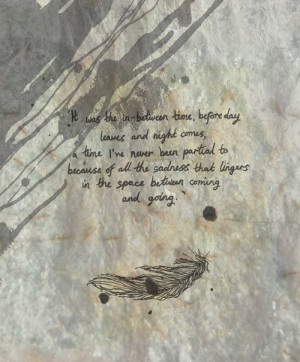 "It was the in-between time, before day
leaves and night comes,
a time I've never been partial to
because of all the sadness that lingers
in the space between coming
and going."